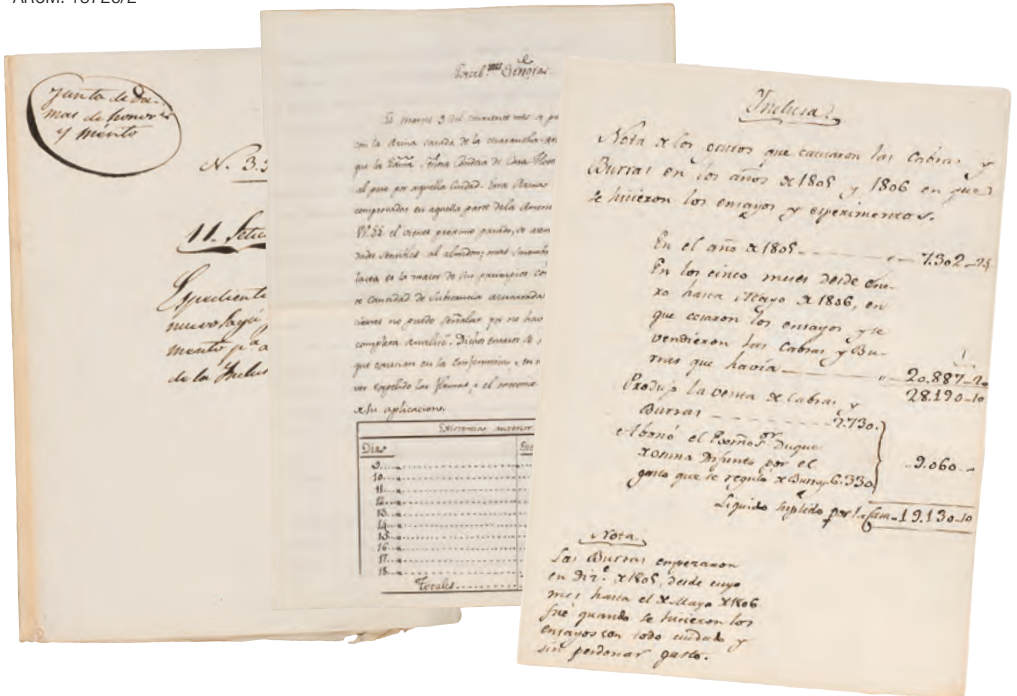 ARCM. 13726/2
Junta de Da-
mas de honor
y mérito
N. 3.5
11. Setie
Expediente
nuevo
mento pª a
de la Inclus
Excel.mos Señoras
El martes 3 del corriente mes se
con la Arina sacada de la
que la Exma Señora Condesa de Casa Flores
al paso por aquella Ciudad. Esta Arina
comprovadas en aquella parte de la America
VV.EE. el viernes proximo pasado, se
al almidon; mas
en la mayor de sus principios con
cantidad de Substancia
ciones no puedo señalar por no hav
completa Analisis. Dichos ensayos se
que existian en la Enfermeria, en
ver expelido las flemas, o el
a su aplicacion.
Existencia anterior.
Dias
9
10
11
12
13
14
15
16
17
18
Totales
Inclusa.
Nota de los gastos que causaron las Cabras y
Burras en los años de 1805 y 1806 en que
se hicieron los ensayos y esperimentos.
En el año de 1805 7.302-24
En los cinco meses desde Ene-
ro hasta Mayo de 1806, en
que cesaron los ensayos y se
vendieron las Cabras y Bu-
rras que havía 20.887-20
28.190-10
Produjo la venta de Cabras y
Burras 2.730.
Abonó el Exomo Sr. Duque
de Osuna Difunto por el
gasto que se reguló de Burras 6.330
9.060
Liquido suplido por 19.130-10
Nota.
Las Burras empezaron
en Dizre. de 1805, desde cuyo
mes hasta el de Mayo de 1806
fué quando se hicieron los
ensayos con todo cuidado y
sin perdonar gasto.